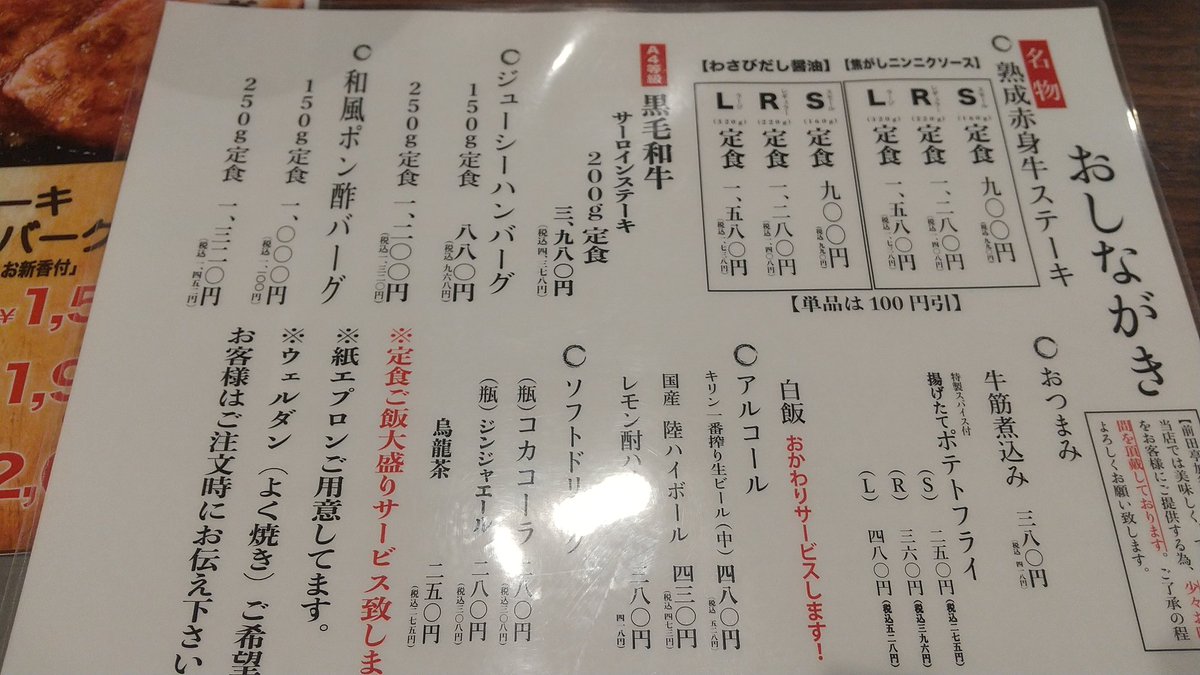 おしながき
名物
熟成赤身牛ステーキ
【焦がしニンニクソース】
S 定食 九〇〇円
(160g)
(税込九九〇円)
R 定食 一、二八〇円
レギュラー
(220g)
(税込一、四〇八円)
L 定食 一、五八〇円
ラージ
(320g)
(税込一、七三八円)
【わさびだし醤油】
S 定食 九〇〇円
(160g)
(税込九九〇円)
R 定食 一、二八〇円
レギュラー
(220g)
(税込一、四〇八円)
L 定食 一、五八〇円
ラージ
(320g)
(税込一、七三八円)
【単品は100円引】
A4等級
黒毛和牛
サーロインステーキ
200g定食 三、九八〇円
(税込四、三七八円)
ジューシーハンバーグ
150g定食 八八〇円
(税込九六八円)
250g定食 一、二〇〇円
(税込一、三二〇円)
和風ポン酢バーグ
150g定食 一、〇〇〇円
(税込一、一〇〇円)
250g定食 一、三二〇円
(税込一、四五二円)
当店では美味しく
をお客様にご提供する為、少々お
間を頂戴しております。ご了承の程
よろしくお願い致します。
おつまみ
牛筋煮込み 三八〇円
(税込 四一八円)
特製スパイス付
揚げたてポテトフライ
(S) 二五〇円(税込二七五円)
(R) 三六〇円(税込三九六円)
(L) 四八〇円(税込五二八円)
白飯 おかわりサービスします!
アルコール
キリン一番搾り生ビール(中) 四八〇円
(税込 五二八円)
国産 陸ハイボール 四三〇円
(税込 四七三円)
レモン酎ハ 三八〇円
四一八円)
ソフトドリンク
(瓶)コカコーラ 二八〇円
(税込三〇八円)
(瓶)ジンジャエール 二八〇円
(税込三〇八円)
烏龍茶 二五〇円
(税込二七五円)
※定食ご飯大盛りサービス致しま
※紙エプロンご用意してます。
※ウェルダン(よく焼き)ご希望
お客様はご注文時にお伝え下さい
ーキ
バーグ
お新香付」
¥1,5